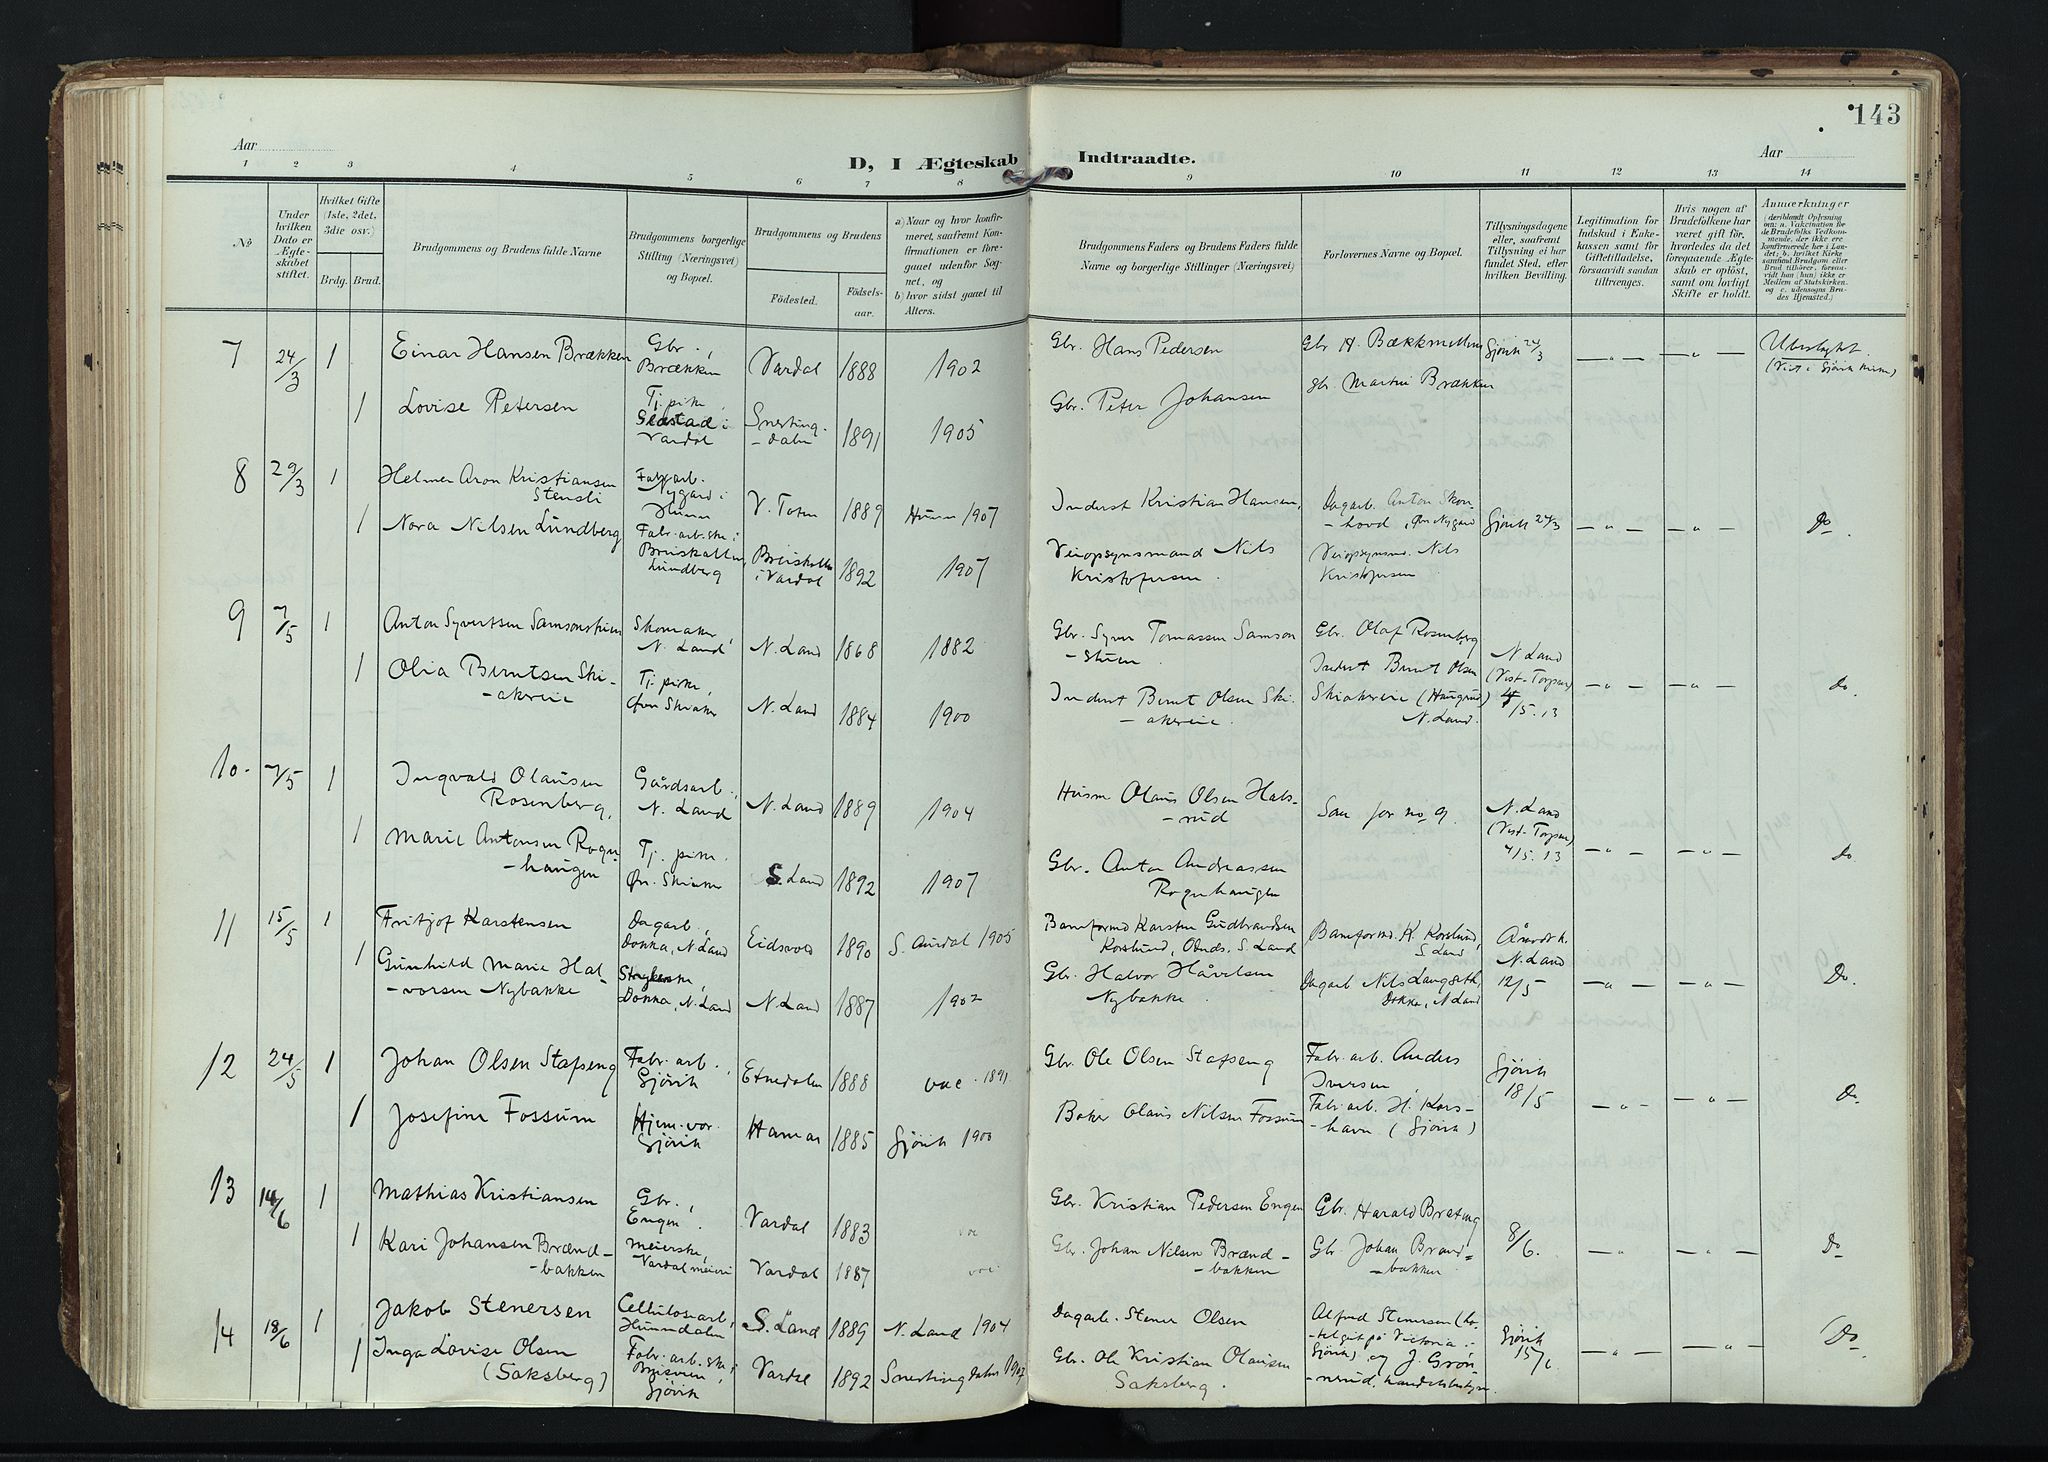 143
Aar
D, I Ægteskab Indtraadte.
Aar
1 2 3 4 5 6 7 8 9 10 11 12 13 14
No
Under hvilken Dato er Ægteskabet stiftet.
Hvilket Gifte (1ste, 2det, 3die osv.)
Brdg. Brud.
Brudgommens og Brudens fulde Navne
Brudgommens borgerlige Stilling (Næringsvei) og Bopæl.
Brudgommens og Brudens
Fødested.
Fødselsaar.
a) Naar og hvor konfirmeret, saafremt Konfirmationen er foregaaet udenfor Sognet, og
b) hvor sidst gaaet til Alters.
Brudgommens Faders og Brudens Faders fulde Navne og borgerlige Stillinger (Næringsvei)
Forlovernes Navne og Bopæl.
Tillysningsdagene eller, saafremt Tillysning ei har fundet Sted, efter hvilken Bevilling.
Legitimation for Indskud i Enkekassen samt for Giftetilladelse, forsaavidt saadan tiltrænges.
Hvis nogen af Brudefolkene har været gift før, hvorledes da det foregaaende Ægteskab er opløst, samt om lovligt Skifte er holdt.
Anmerkninger
7 24/3 1 Einar Hansen Brækken Gbr., Brækken Vardal 1888 1902 Gbr. Hans Pedersen Gjøvik 24/3 — " — — " —
1 Lovise Petersen Tj. pike, Vardal Snertingdalen 1891 1905 Gbr. Peter Johansen Gbr. Martin Brækken
8 29/3 1 Helmer Aron Kristiansen Stensli V. Toten 1889 Hunn 1907 Inderst Kristian Hansen, Dagarb. Anton Skonhovd Gjøvik 24/3 — " — — " — Do.
1 Nora Nilsen Lundberg Fabr. arb.ske i Lundberg i Vardal 1892 1907 Veiopsynsmand Nils Kristofersen. Veiopsynsm. Nils Kristofersen
9 7/5 1 Anton Syvertsen Samsonstuen Skomaker, N. Land N. Land 1868 1882 Gbr. Syver Tomassen Samsonstuen. Gbr. Olaf Rosenberg N. Land (Vest-Torpen) 4/5.13 — " — — " — Do.
1 Olia Berntsen Skiakereie Tj. pike, Øvr. Skiaker N. Land 1884 1900 Inderst Bernt Olsen Skiakereie. Inderst Bernt Olsen Skiakereie (Haugrud) N. Land.
10. 7/5 1 Ingvald Olausen Rosenberg, Gårdsarb., N. Land N. Land 1889 1904 Husm Olaus Olsen Halsrud Som for no. 9. N. Land (Vest-Torpen) 4/5.13 — " — — " — Do
1 Marie Antonsen Rognhaugen Tj. pike. Øv. Skiaker S. Land 1892 1907 Gbr. Anton Andreassen Rognhaugen
11 15/5 1 Fritjof Karstensen Dagarb., Dokka, N. Land Eidsvold 1890 S. Aurdal 1905 Baneformd Karsten Gudbrandsen Korslund, Odnes, S. Land Baneformd. K. Korslund, S. Land N. Land 12/5 — " — — " — Do.
1 Gunhild Marie Halvorsen Nybakke Dokka, N. Land N. Land 1887 1902 Gbr. Halvor Håvelsen Nybakke. Dagarb Nils Langseth, Dokka, N. Land
12 24/5 1 Johan Olsen Stafseng Fabr. arb., Gjøvik Etnedalen 1888 Gbr. Ole Olsen Stafseng Fabr. arb. Anders Iversen, Gjøvik 18/5 — " — — " — Do.
1 Josefine Fossum Hjem. vor. Gjøvik Hamar 1885 Gjøvik 1900 Baker Olaus Nilsen Fossum Fabr. arb. H. Korshavn (Gjøvik)
13 14/6 1 Mathias Kristiansen Gbr., Engen. Vardal 1883 Gbr. Kristian Pedersen Engen Gbr. Harald Bræteng 8/6. — " — — " — Do
1 Kari Johansen Brændbakken Meierske, Vardal meieri Vardal 1887 Gbr. Johan Nilsen Brændbakken Gbr. Johan Brændbakken
14 18/6 1 Jakob Stenersen Cellulosearb, Hunndalen S. Land 1889 N. Land 1904 Dagarb. Stener Olsen Alfred Stenersen på Victoria i Gjøvik) og J. Grønnerud, Gjøvik 15/6 — " — — " — Do.
1 Inga Lovise Olsen (Saksberg) Fabr. arb.ske i Gjøvik Vardal 1892 Snertingdalen 1907 Gbr. Ole Kristian Olausen Saksberg.